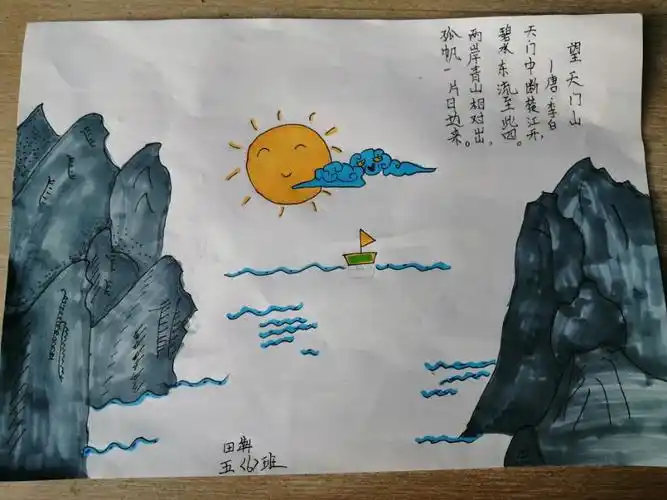 望天门山
—唐·李白
天门中断楚江开,
碧水东流至此回。
两岸青山相对出,
孤帆一片日边来。
田
五〈6〉班